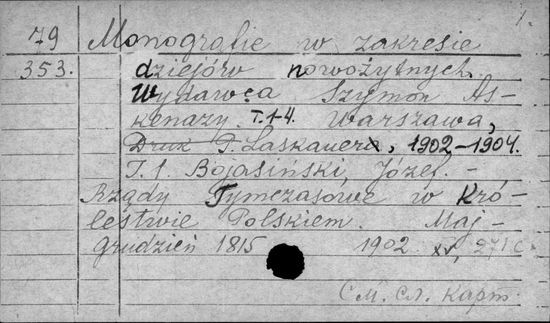 1.
79 Monografie w zakresie
353. dziejów nowożytnych.
Wydawca Szymon As-
kenazy. T. 1-4. Warszawa,
Druk P. Laskauera, 1902-1904.
T. 1. Bojasiński, Józef. -
Rządy Tymczasowe w Kró-
lestwie Polskiem. Maj -
grudzień 1815 1902 XV, 271 C.
См. сл. карт.